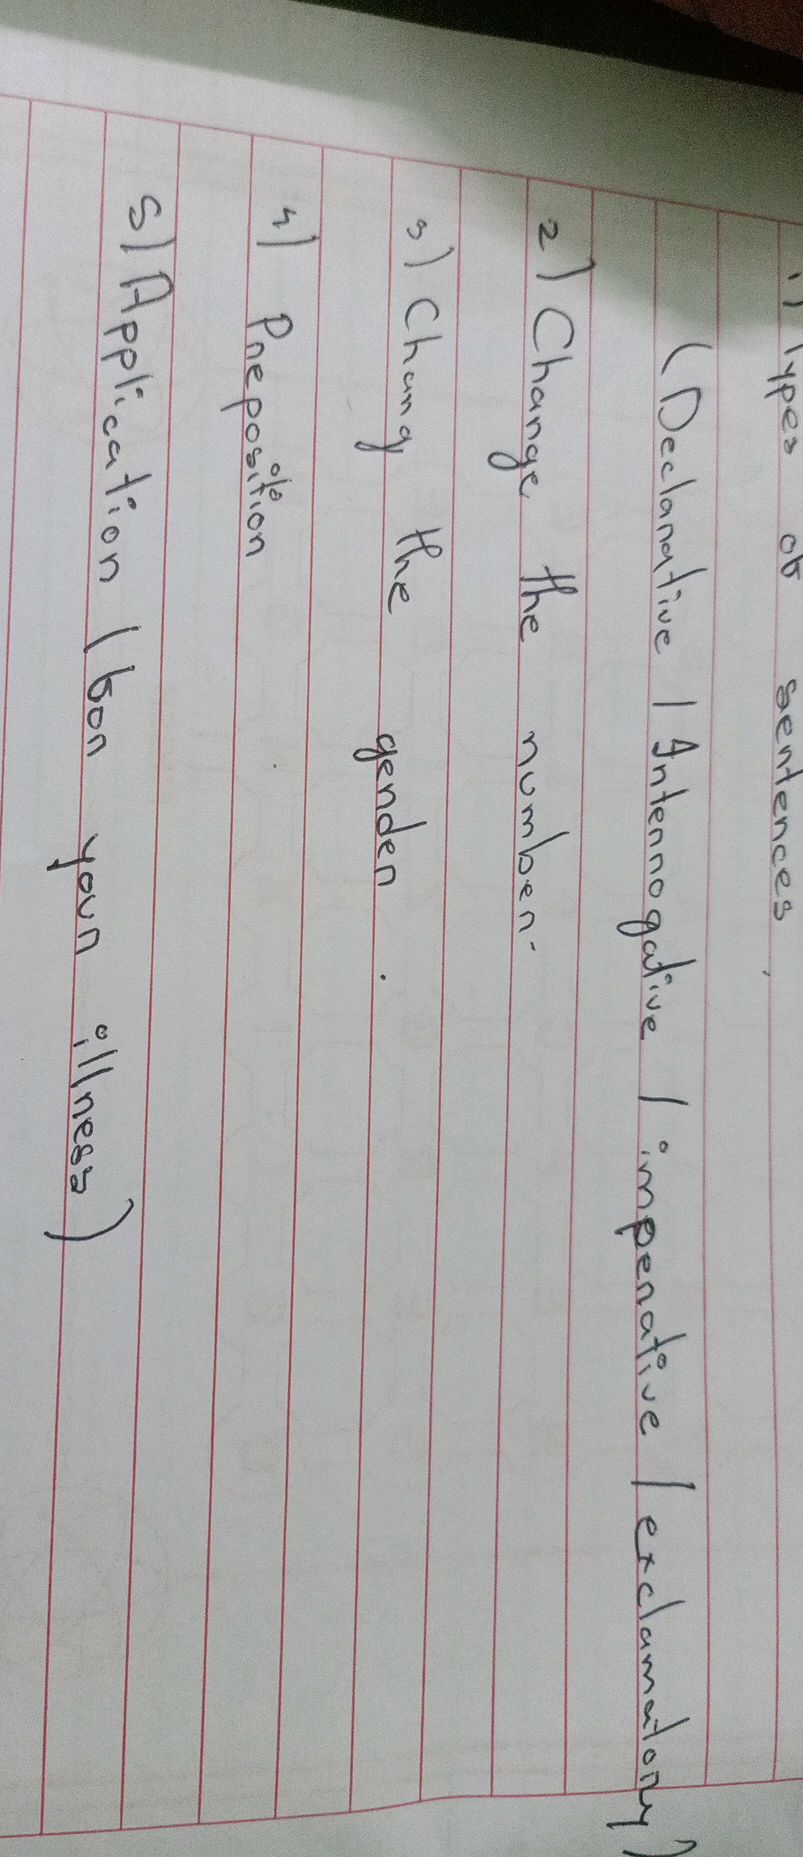 1) Types of sentences
(Declarative / Interrogative / imperative / exclamatory)
2) Change the number.
3) Chang the gender.
4) Preposition
5) Application (for your illness)